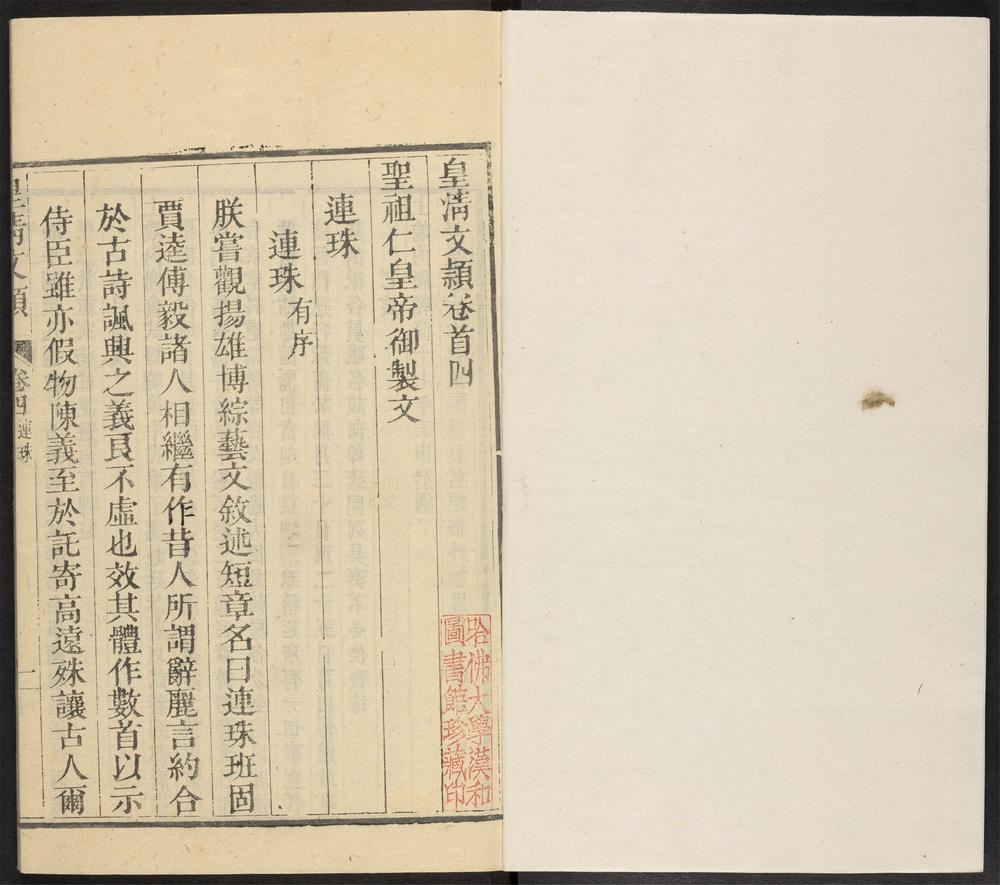 皇淸文穎卷首四
聖祖仁皇帝御製文
連珠
連珠有序
朕嘗觀揚雄博綜藝文敘述短章名曰連珠班固
賈逵傅毅諸人相繼有作昔人所謂辭麗言約合
於古詩諷興之義良不虛也效其體作數首以示
侍臣雖亦假物陳義至於託寄高遠殊讓古人爾
皇淸文穎
卷四
連珠
一
哈佛大學漢和
圖書館珍藏印